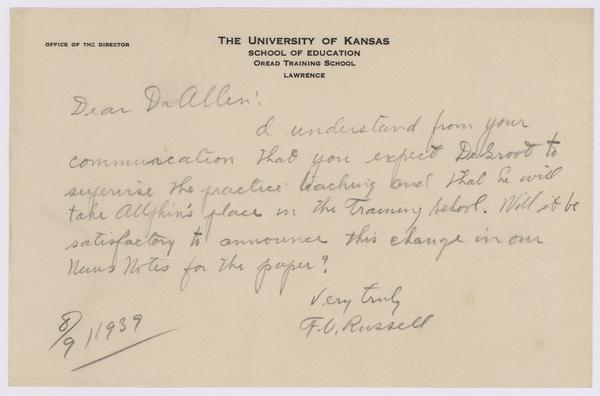 OFFICE OF THE DIRECTOR
THE UNIVERSITY OF KANSAS
SCHOOL OF EDUCATION
OREAD TRAINING SCHOOL
LAWRENCE
Dear Dr Allen:
I understand from your
communication that you expect DeGroot to
supervise the practice teaching and that he will
take place in the Training School. Will it be
satisfactory to announce this change in our
News Notes for the paper?
Very truly
F.O. Russell
8/9/1939